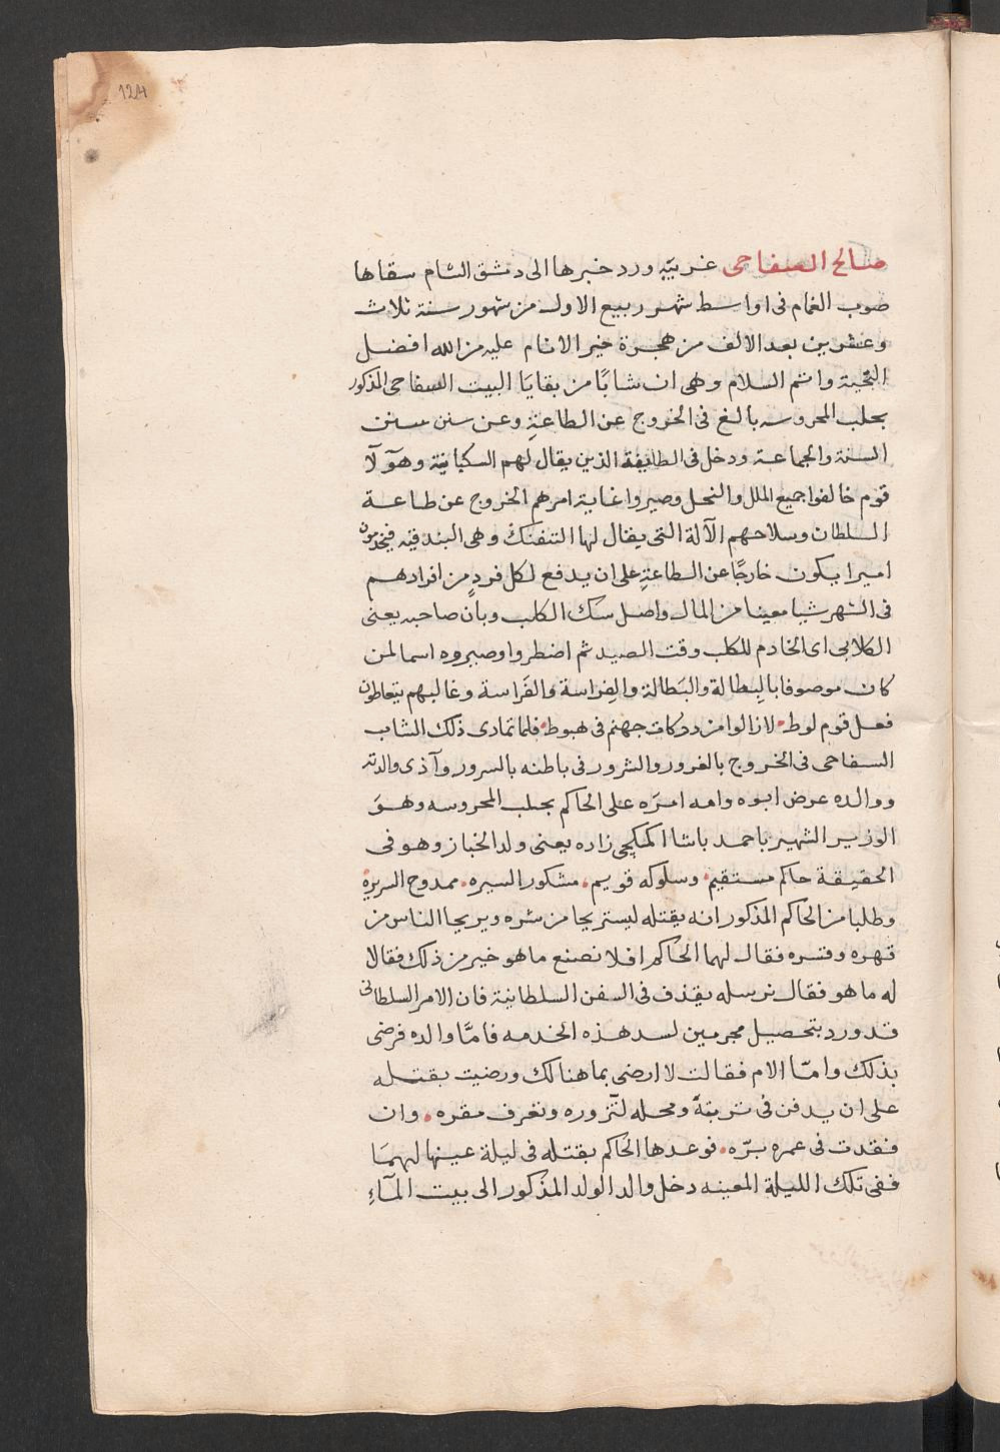 124
صالح السفاحى غريبة ورد خبرها الى دمشق الشام سقاها
صوب الغمام فى اواسط شهر ربيع الاول من شهور سنة ثلاث
وعشرين بعد الالف من هجرة خير الانام عليه من الله افضل
التحية واتم السلام وهى ان شابًا من بقايا البيت السفاحى المذكور
بحلب المحروسه بالغ فى الخروج عن الطاعةِ وعن سنن سنن
السنة والجماعة ودخل فى الطايفة الذين يقال لهم السكبانية وهؤلآ
قوم خالفوا جميع الملل والنحل وصيروا غاية امرهم الخروج عن طاعة
السلطان وسلاحهم الآلة التى يقال لها التفنك وهى البندقيه فيخدمون
اميرا يكون خارجًا عن الطاعةِ على ان يدفع لكل فردٍ من افرادهم
فى الشهر شيا معينا من المال واصل سك الكلب وبان صاحبه يعنى
الكلابى اى الخادم للكلب وقت الصيد ثم اضطروا وصيروه اسما لمن
كان موصوفا بالبِطالة والبَطالة والفِراسة والفَراسة وغالبهم يتعاطون
فعل قوم لوط لازالوا من دركات جهنم فى هبوط فلما تمادى ذلك الشاب
السفاحى فى الخروج بالغرور والشرور فى باطنه بالسرور وآذى والدته
ووالده عرض ابوه وامه امرَه على الحاكم بحلب المحروسه وهوَ
الوزير الشهير باحمد باشا اكمكچى زاده يعنى ولد الخباز وهو فى
الحقيقة حاكم مستقيم وسلوكه قويم مشكور السيره ممدوح السريرة
وطلبا من الحاكم المذكور انه يقتله ليستريحا من شره ويريحا الناس من
قهره وقسره فقال لهما الحاكم افلا نصنع ما هو خير من ذلك فقالا
له ما هو فقال نرسله يقذف فى السفن السلطانية فان الامر السلطانى
قد ورد بتحصيل مجرمين لسد هذه الخدمه فامّا والده فرضى
بذلك وامّا الام فقالت لا ارضى بما هنالك ورضيت بقتله
على ان يدفن فى تربةٍ ومحله لتزوره وتعرف مقره وان
فقدت فى عمره برّه فوعدها الحاكم بقتله فى ليلة عينها لهما
ففى تلك الليلة المعينه دخل والد الولد المذكور الى بيت المآءِ